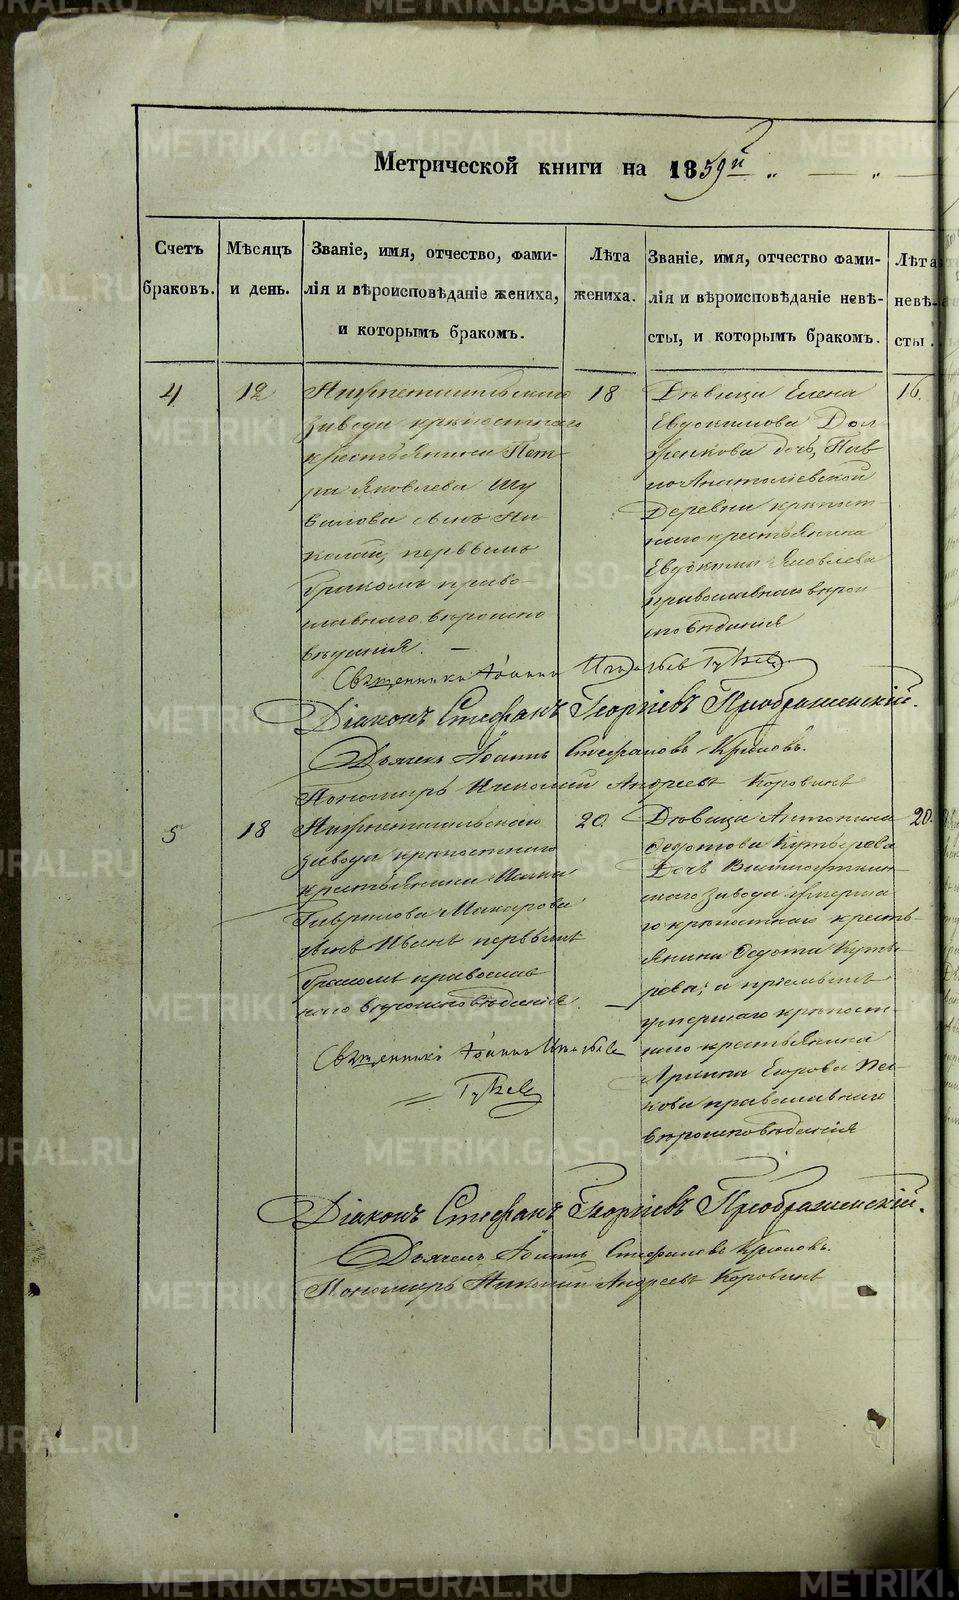 Метрической книги на 1859й
Счетъ браковъ.
Мѣсяцъ и день.
Званіе, имя, отчество, фами-
лія и вѣроисповѣданіе жениха,
и которымъ бракомъ.
Лѣта жениха.
Званіе, имя, отчество фами-
лія и вѣроисповѣданіе невѣ-
сты, и которымъ бракомъ.
Лѣта невѣ-
сты.
4
12
Нижнетагильскаго
завода крѣпостнаго
крестьянина Пет-
ра Яковлева Шу
валова сынъ Ни
колай, первымъ
бракомъ право-
славнаго вѣроиспо
вѣданія.
18
Дѣвица Елена
Евдокимова Дол
женкова дочь, Пав
лоАнатоліевской
Деревни крѣпост
наго крестьянина
Евдокима Яковлева
православнаго вѣрои
сповѣданія
16.
Священникъ Іоаннъ
Діаконъ Стефанъ Георгіевъ Преображенскій.
Дьячекъ Іоаннъ Стефановъ Крюковъ.
Пономарь Николай Андреевъ Коровинъ
5
18
Нижнетагильскаго
завода крѣпостнаго
крестьянина Ивана
Гаврилова Макарова
сынъ Иванъ первымъ
бракомъ православ
наго вѣроисповѣданія.
20.
Дѣвица Антонина
Федотова
Дочь
скаго завода умерша
го крѣпостнаго кресть
янина Федота
умершаго крѣпост
наго крестьянина
Егорова
православнаго
вѣроисповѣданія
20.
Священникъ Іоаннъ
Діаконъ Стефанъ Георгіевъ Преображенскій.
Дьячекъ Іоаннъ Стефановъ Крюковъ.
Пономарь Николай Андреевъ Коровинъ
METRIKI.GASO-URAL.RU